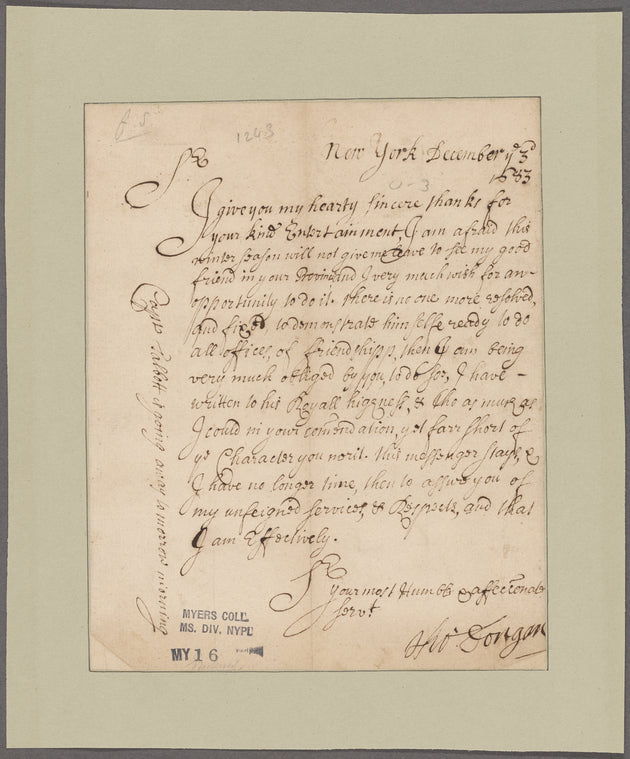 1243
New York December ye 3d
1683
Sr
I give you my hearty sincere thanks for
your kind Entertainment, I am afraid this
winter season will not give me leave to see my good
friend in your Province and I very much wish for an-
opportunity to do it. there is no one more resolved,
and fixed, to demonstrate himselfe ready to do
all offices, of friendshipp, then I am being
very much obliged by you, to do soe, I have -
written to his Royall highness, & tho as much as
I could in your comendation, yet farr short of
ye Character you merit. this messenger stays, &
I have no longer time, then to assure you of
my unfeigned services, & Respects, and that
I am Effectively.
Sr
your most Humble & affectionate
servt
Tho Dongan
Capt is going away to morrow morning
MYERS COLL.
MS. DIV. NYPL
MY 16